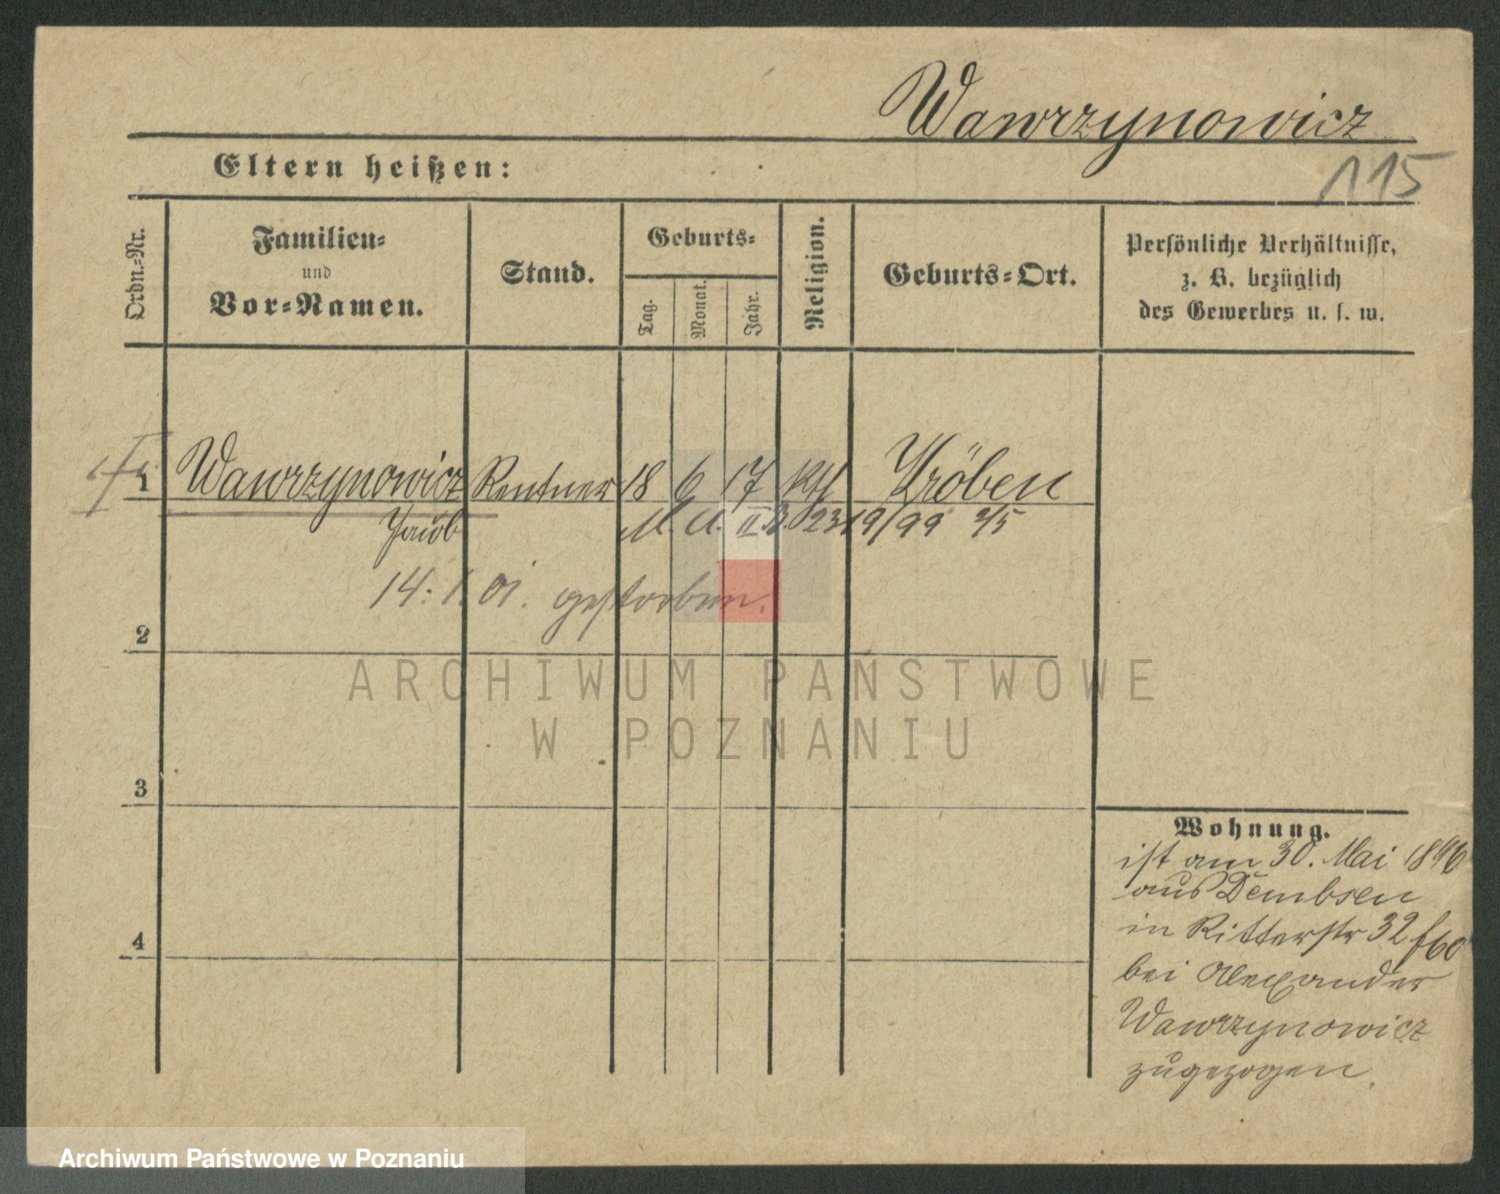 Wawrzynowicz
115
Eltern heißen:
Ordn.-Nr.
Familien-
und
Vor-Namen.
Stand.
Geburts-
Tag.
Monat.
Jahr.
Religion.
Geburts-Ort.
Persönliche Verhältnisse,
z. B. bezüglich
des Gewerbes u. s. w.
1 Wawrzynowicz Rentner 18 6 17 kth Kröben
Jacob M. A. II B. 2319/99 3/5
14. 1. 01. gestorben.
2
ARCHIWUM PAŃSTWOWE
W POZNANIU
3
Wohnung.
ist am 30. Mai 1896
aus Dembsen
in Ritterstr 32
bei Alexander
Wawrzynowicz
zugezogen.
4
Archiwum Państwowe w Poznaniu